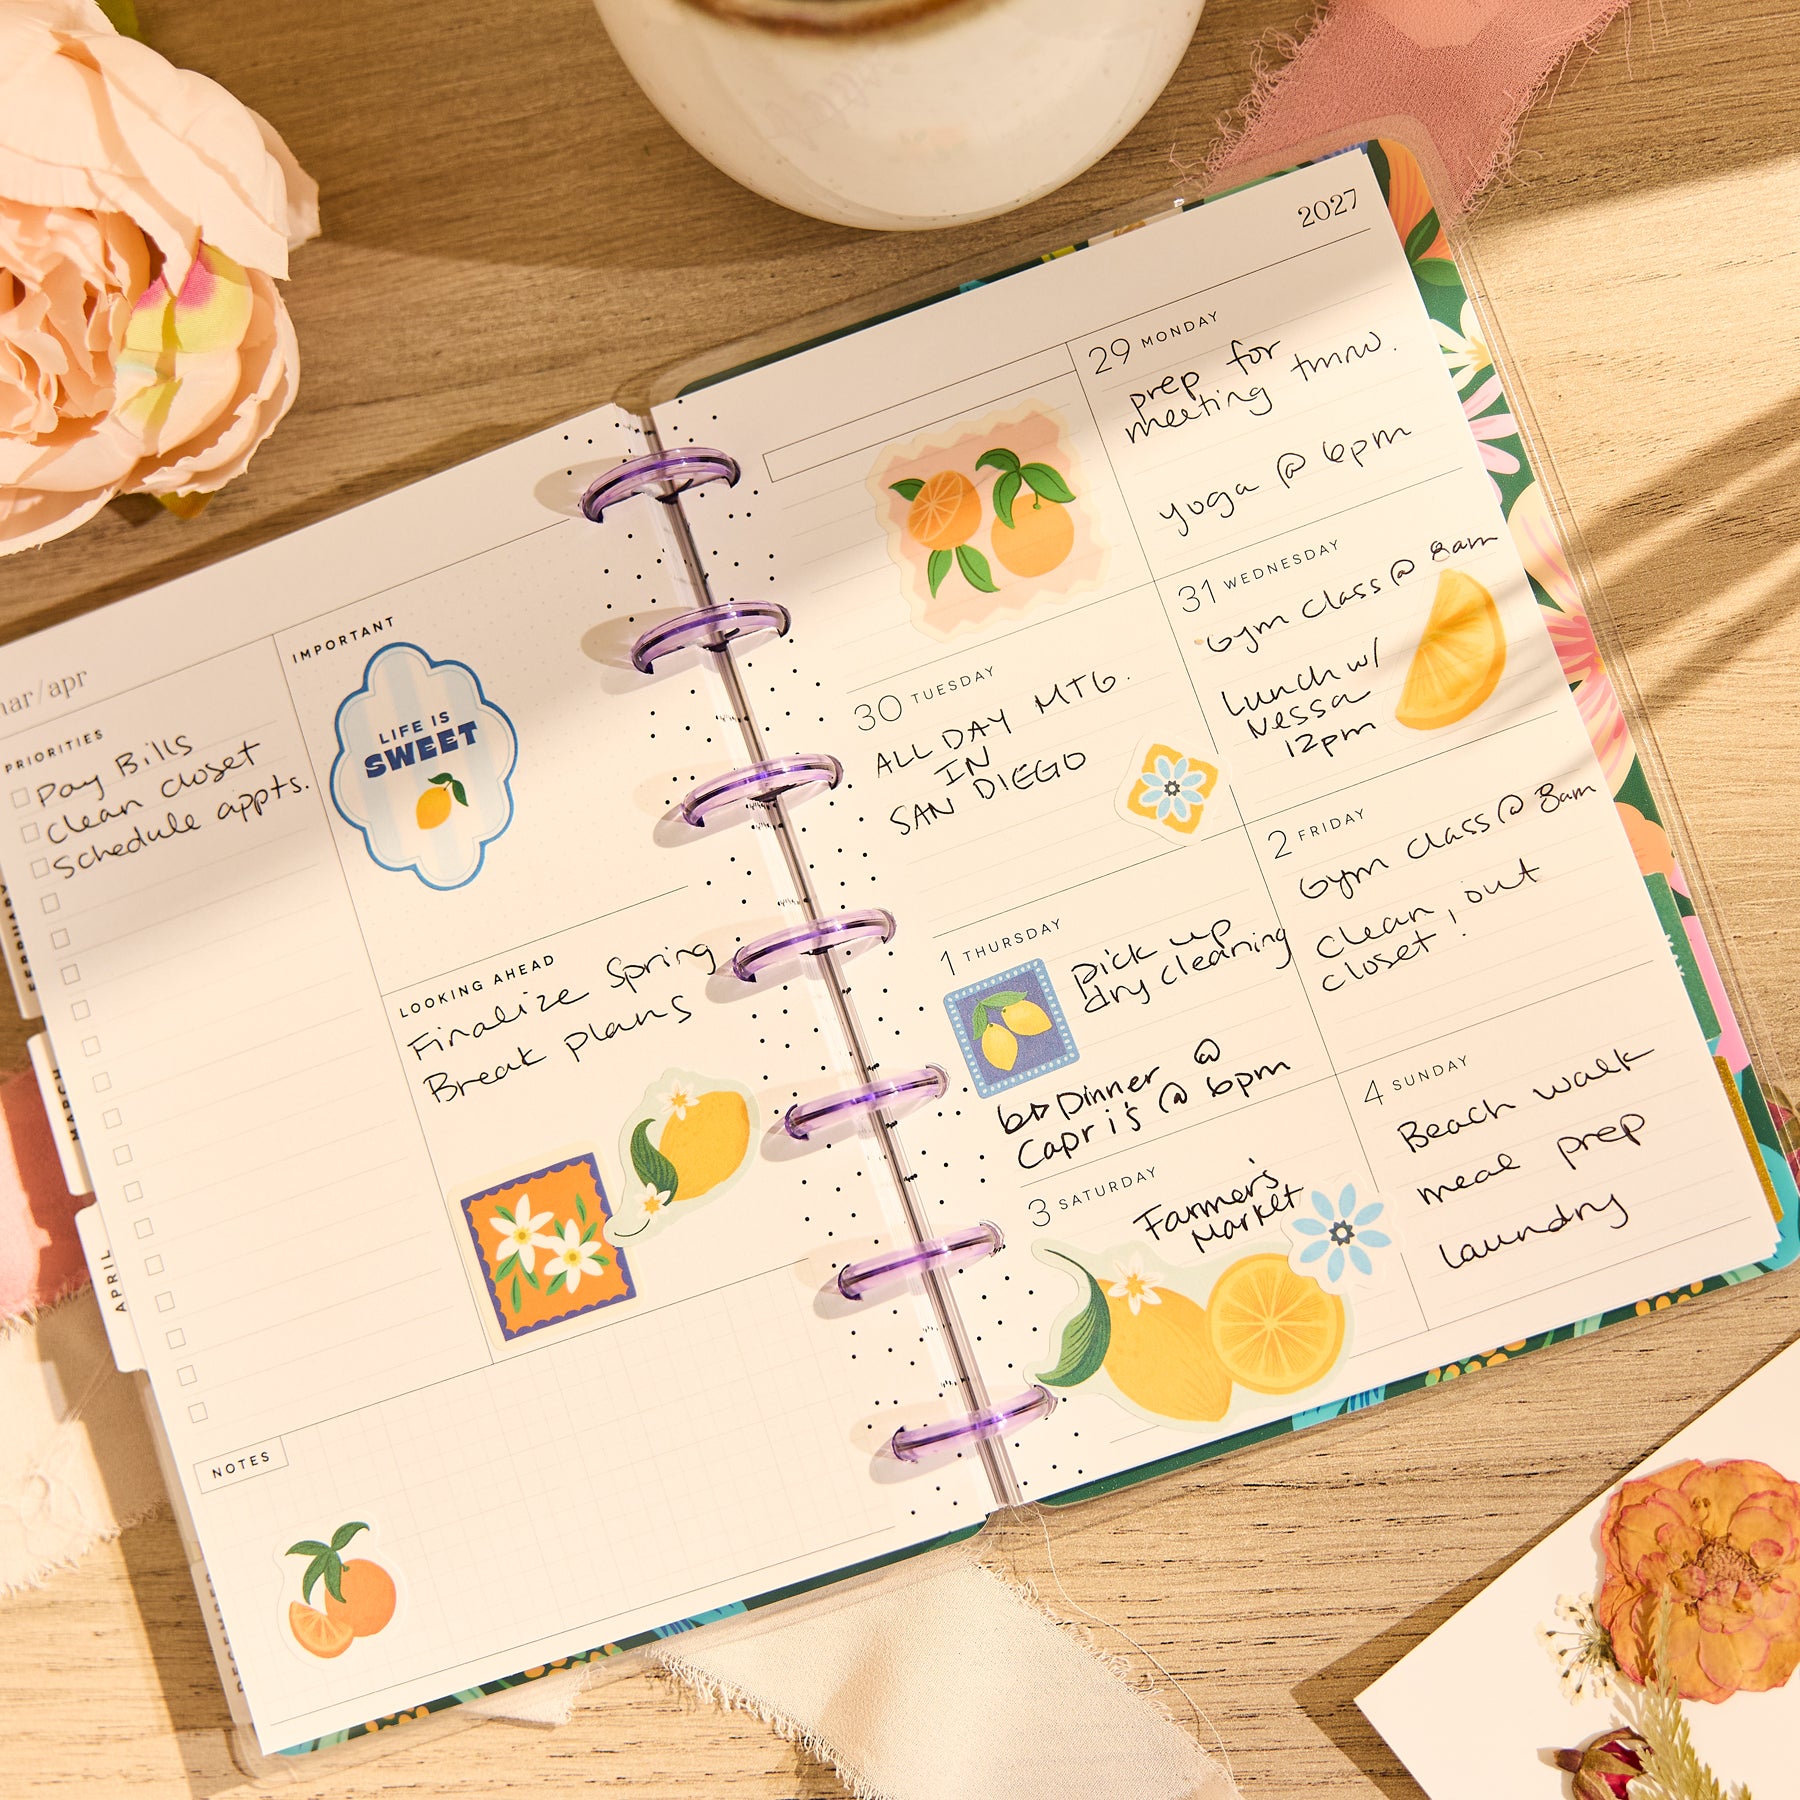 mar/apr
PRIORITIES
Pay Bills
Clean closet
Schedule appts.
IMPORTANT
LIFE IS
SWEET
LOOKING AHEAD
Finalize Spring
Break plans
NOTES
FEBRUARY
MARCH
APRIL
DECEMBER
2027
29 MONDAY
prep for
meeting tmrw.
yoga @ 6pm
30 TUESDAY
ALL DAY MTG.
IN
SAN DIEGO
31 WEDNESDAY
Gym Class @ 8am
Lunch w/
Nessa
12pm
1 THURSDAY
pick up
dry cleaning
Dinner @
Capri's @ 6pm
2 FRIDAY
Gym Class @ 8am
clean out
closet!
3 SATURDAY
Farmer's
Market
4 SUNDAY
Beach walk
meal prep
laundry